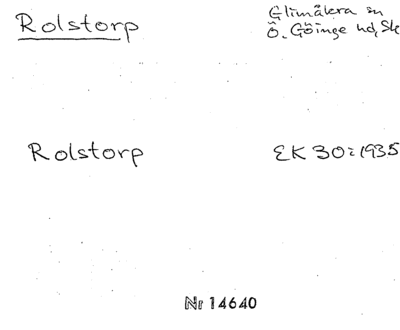 Rolstorp
Glimåkra sn
Ö. Göinge hd, Sk
Rolstorp
EK 30:1935
Nr 14640